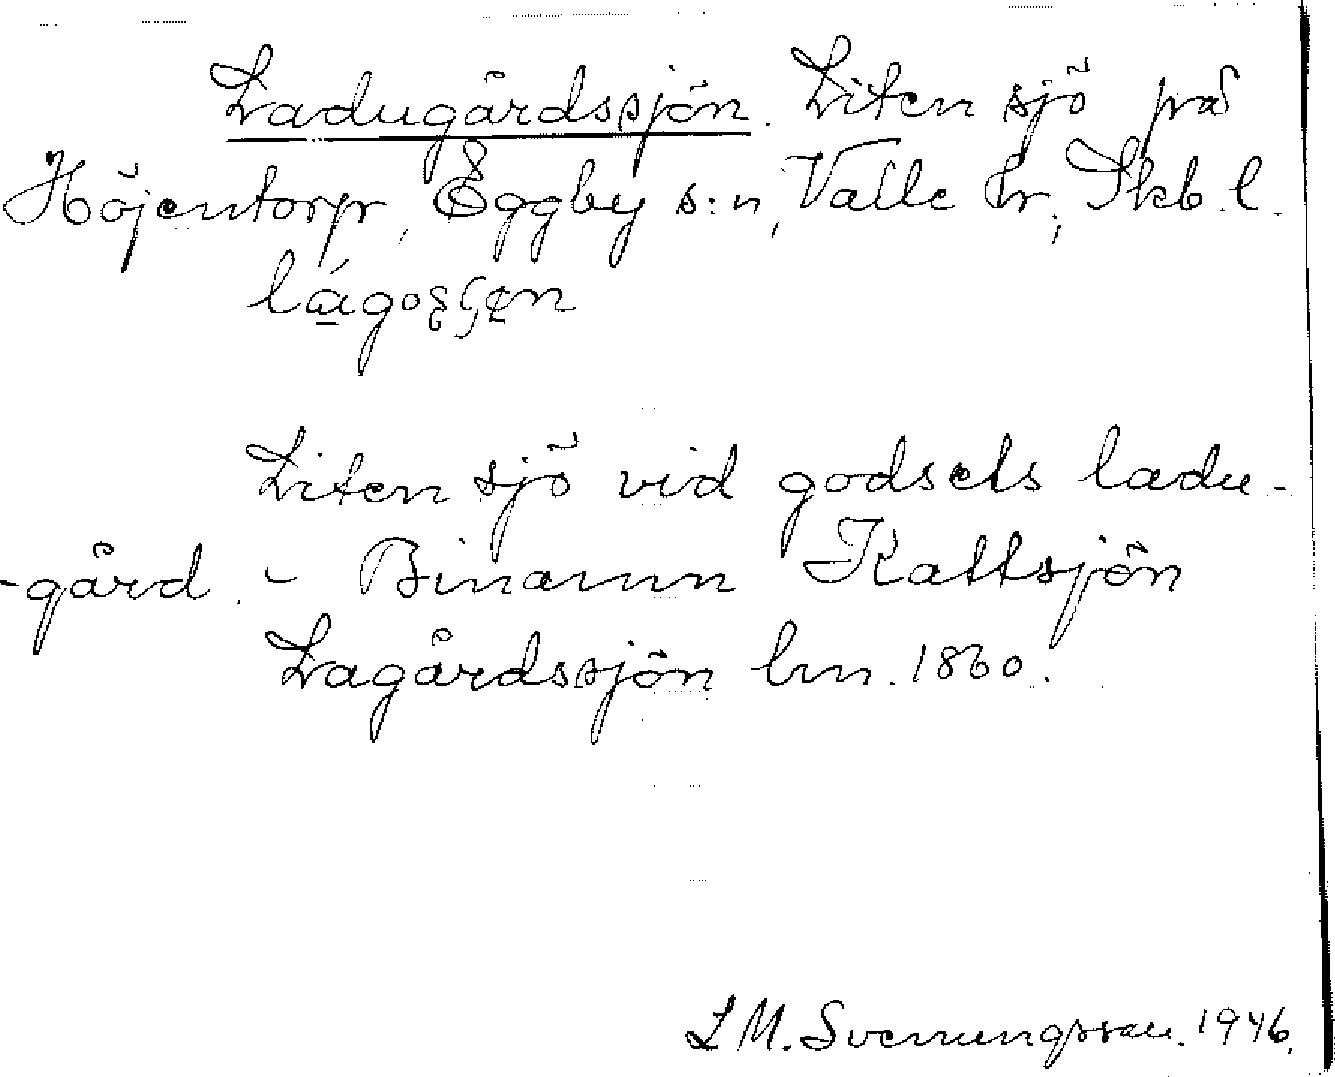 Ladugårdssjön. Liten sjö på
Höjentorp, Eggby s:n, Valle hr, Skb. l.
Liten sjö vid godsets ladu-
-gård. - Binamn Kattsjön
Lagårdssjön bm. 1860.
L M. Svenungsson. 1946.